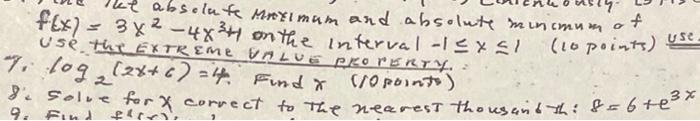 the absolute maximum and absolute minimum of
f(x) = 3x² - 4x³+1 on the interval -1 ≤ x ≤ 1 (10 points) use
use the EXTREME VALUE PROPERTY.
7. log₂(2x+6) = 4. Find x (10 points)
8. solve for x correct to the nearest thousandth: 8 = 6 + e³ˣ
9. Find f'(x)